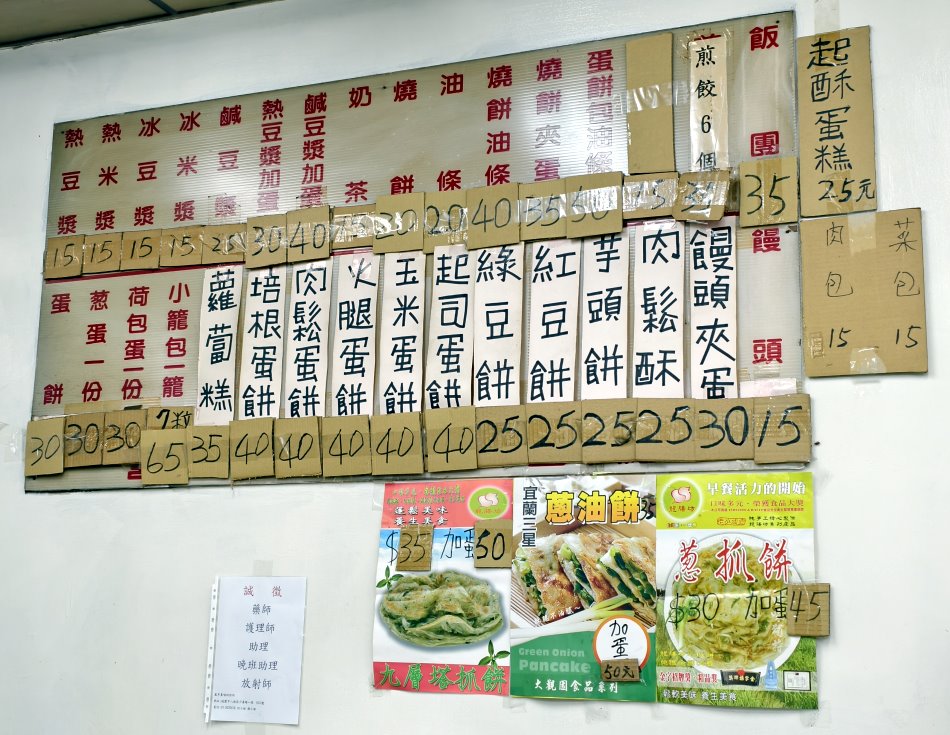 飯糰
35
煎餃6個
蛋餅包油條
50
燒餅夾蛋
35
燒餅油條
40
油條
20
燒餅
20
奶茶
鹹豆漿加蛋
40
熱豆漿加蛋
30
鹹豆漿
25
冰米漿
15
冰豆漿
15
熱米漿
15
熱豆漿
15
起酥蛋糕
25元
饅頭
15
饅頭夾蛋
30
肉鬆酥
25
芋頭餅
25
紅豆餅
25
綠豆餅
25
起司蛋餅
40
玉米蛋餅
40
火腿蛋餅
40
肉鬆蛋餅
40
培根蛋餅
40
蘿蔔糕
35
小籠包一籠
7粒
65
荷包蛋一份
30
葱蛋一份
30
蛋餅
30
菜包
15
肉包
15
蓬鬆美味
養生美食
$35 加蛋50
九層塔抓餅
宜蘭三星
蔥油餅
35
加蛋
50元
Green Onion
Pancake
大觀園食品系列
早餐活力的開始
口味多元、榮獲食品大獎
蔥抓餅
$30 加蛋45
鬆軟美味 養生美食
誠徵
藥師
護理師
助理
晚班助理
放射師